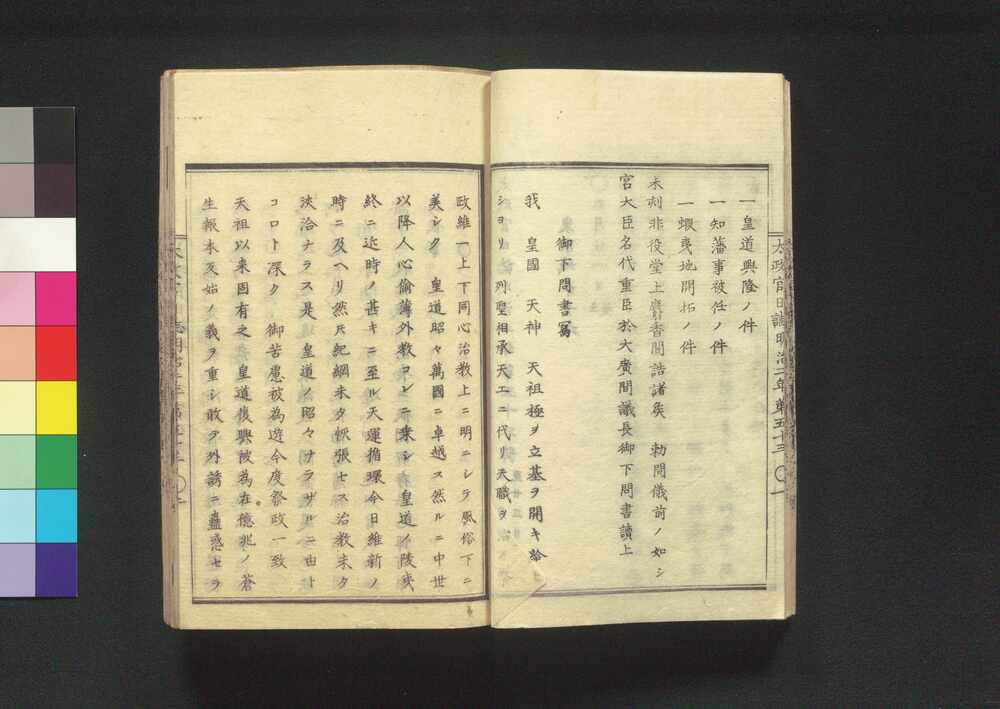 一皇道興隆ノ件
一知藩事被任ノ件
一蝦夷地開拓ノ件
未刻非役堂上麝香間詰諸矦 勅問儀前ノ如シ
宮大臣名代重臣於大廣間議長御下問書讀上
御下問書寫
我 皇國 天神 天祖極ヲ立基ヲ開キ給ヒ
シヨリ 列聖相承天工ニ代リ天職ヲ
政維一上下同心治教上ニ明ニシテ風俗下ニ
美シク 皇道昭々萬國ニ卓越ス然ルニ中世
以降人心偷薄外教コレニ乗シ 皇道ノ陵夷
終ニ近時ノ甚キニ至ル天運循環今日維新ノ
時ニ及ヘリ然𪜈紀綱未タ恢張セス治教未タ
浹洽ナラス是 皇道ノ昭々ナラサルニ由ト
コロト深ク 御苦慮被為遊今度祭政一致
天祖以来固有之 皇道復興被為在億兆ノ蒼
生報本反始ノ義ヲ重シ敢テ外誘ニ蠱惑セラ
太政官日誌明治二年第五十三 〇一